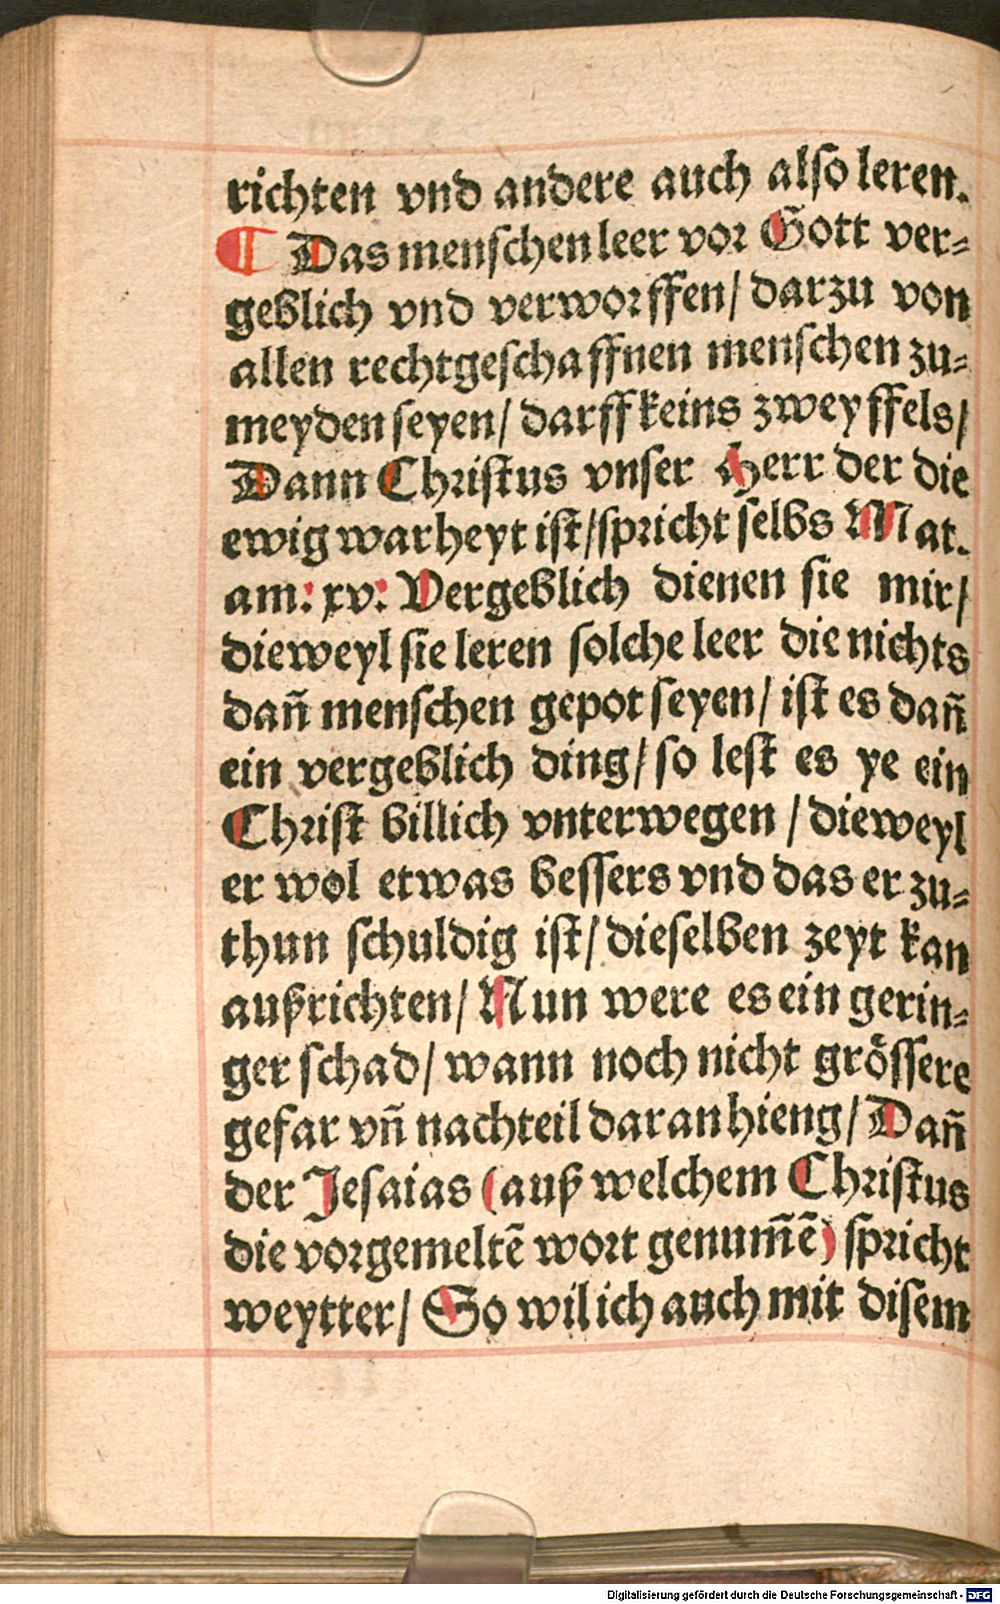 richten vnd andere auch also leren.
¶ Das menschen leer vor Gott ver⸗
geblich vnd verworffen/ darzu von
allen rechtgeschaffnen menschen zu⸗
meyden seyen/ darff keins zweyffels/
Dann Christus vnser Herr der die
ewig warheyt ist/ spricht selbs Mat.
am: xv: Vergeblich dienen sie mir/
dieweyl sie leren solche leer die nichts
dañ menschen gepot seyen/ ist es dañ
ein vergeblich ding/ so lest es ye ein
Christ billich vnterwegen/ dieweyl
er wol etwas bessers vnd das er zu⸗
thun schuldig ist/ dieselben zeyt kan
außrichten/ Nun were es ein gerin⸗
ger schad/ wann noch nicht grössere
gefar vñ nachteil daran hieng/ Dañ
der Jesaias (auß welchem Christus
die vorgemeltẽ wort genum̃ẽ) spricht
weytter/ So wil ich auch mit disem
Digitalisierung gefördert durch die Deutsche Forschungsgemeinschaft - DFG